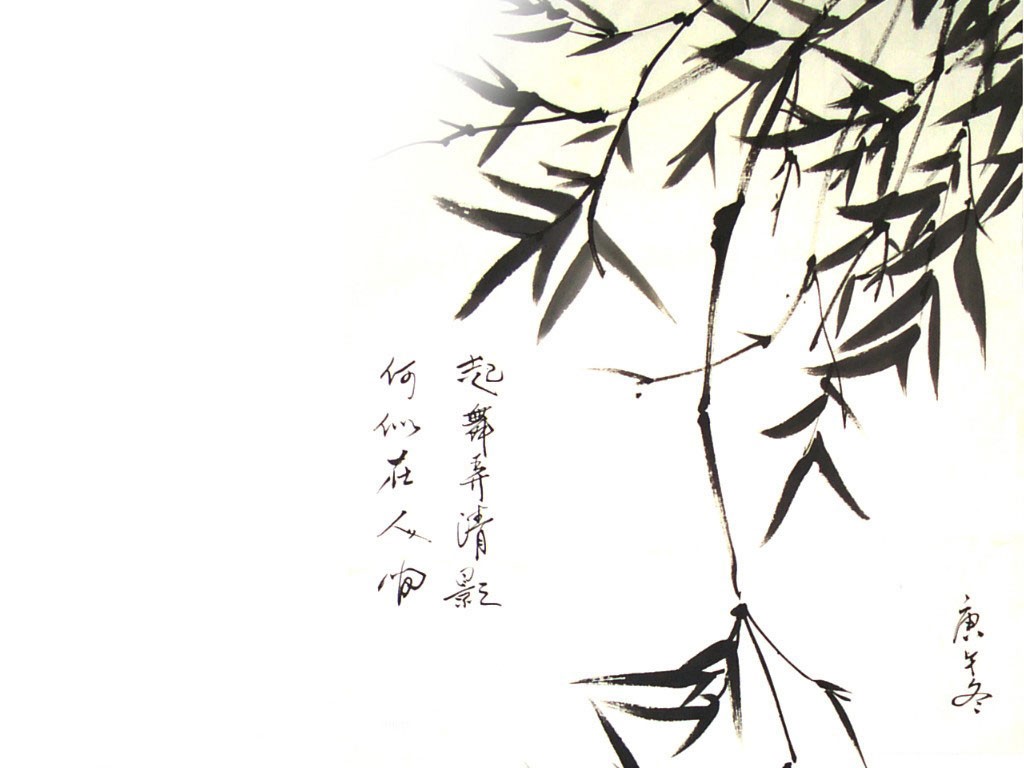 起舞弄清影
何似在人間
庚午冬